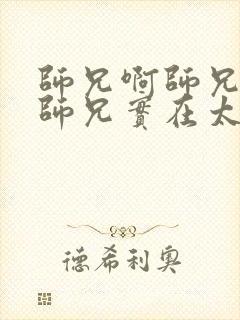 師兄啊師兄
師兄實在太
德希利奧